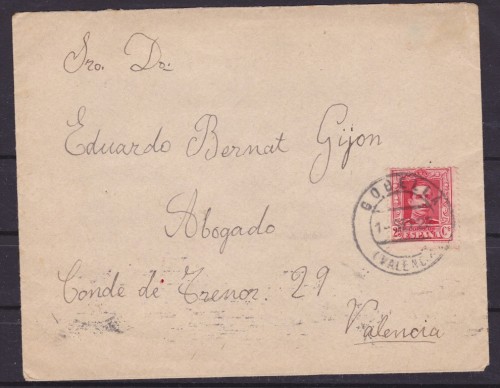 Sro. Dr.
Eduardo Bernat Gijon
Abogado
Conde de Trenor. 29
Valencia
ESPAÑA